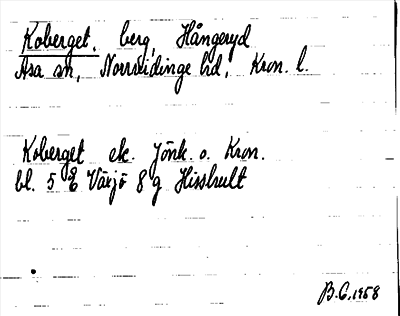 Koberget, berg, Hångeryd
Asa sn, Norrvidinge hd, Kron. l.
Koberget ek. Jönk. o. Kron.
bl. 5 Växjö 8 g Hisshult
B.G. 1958